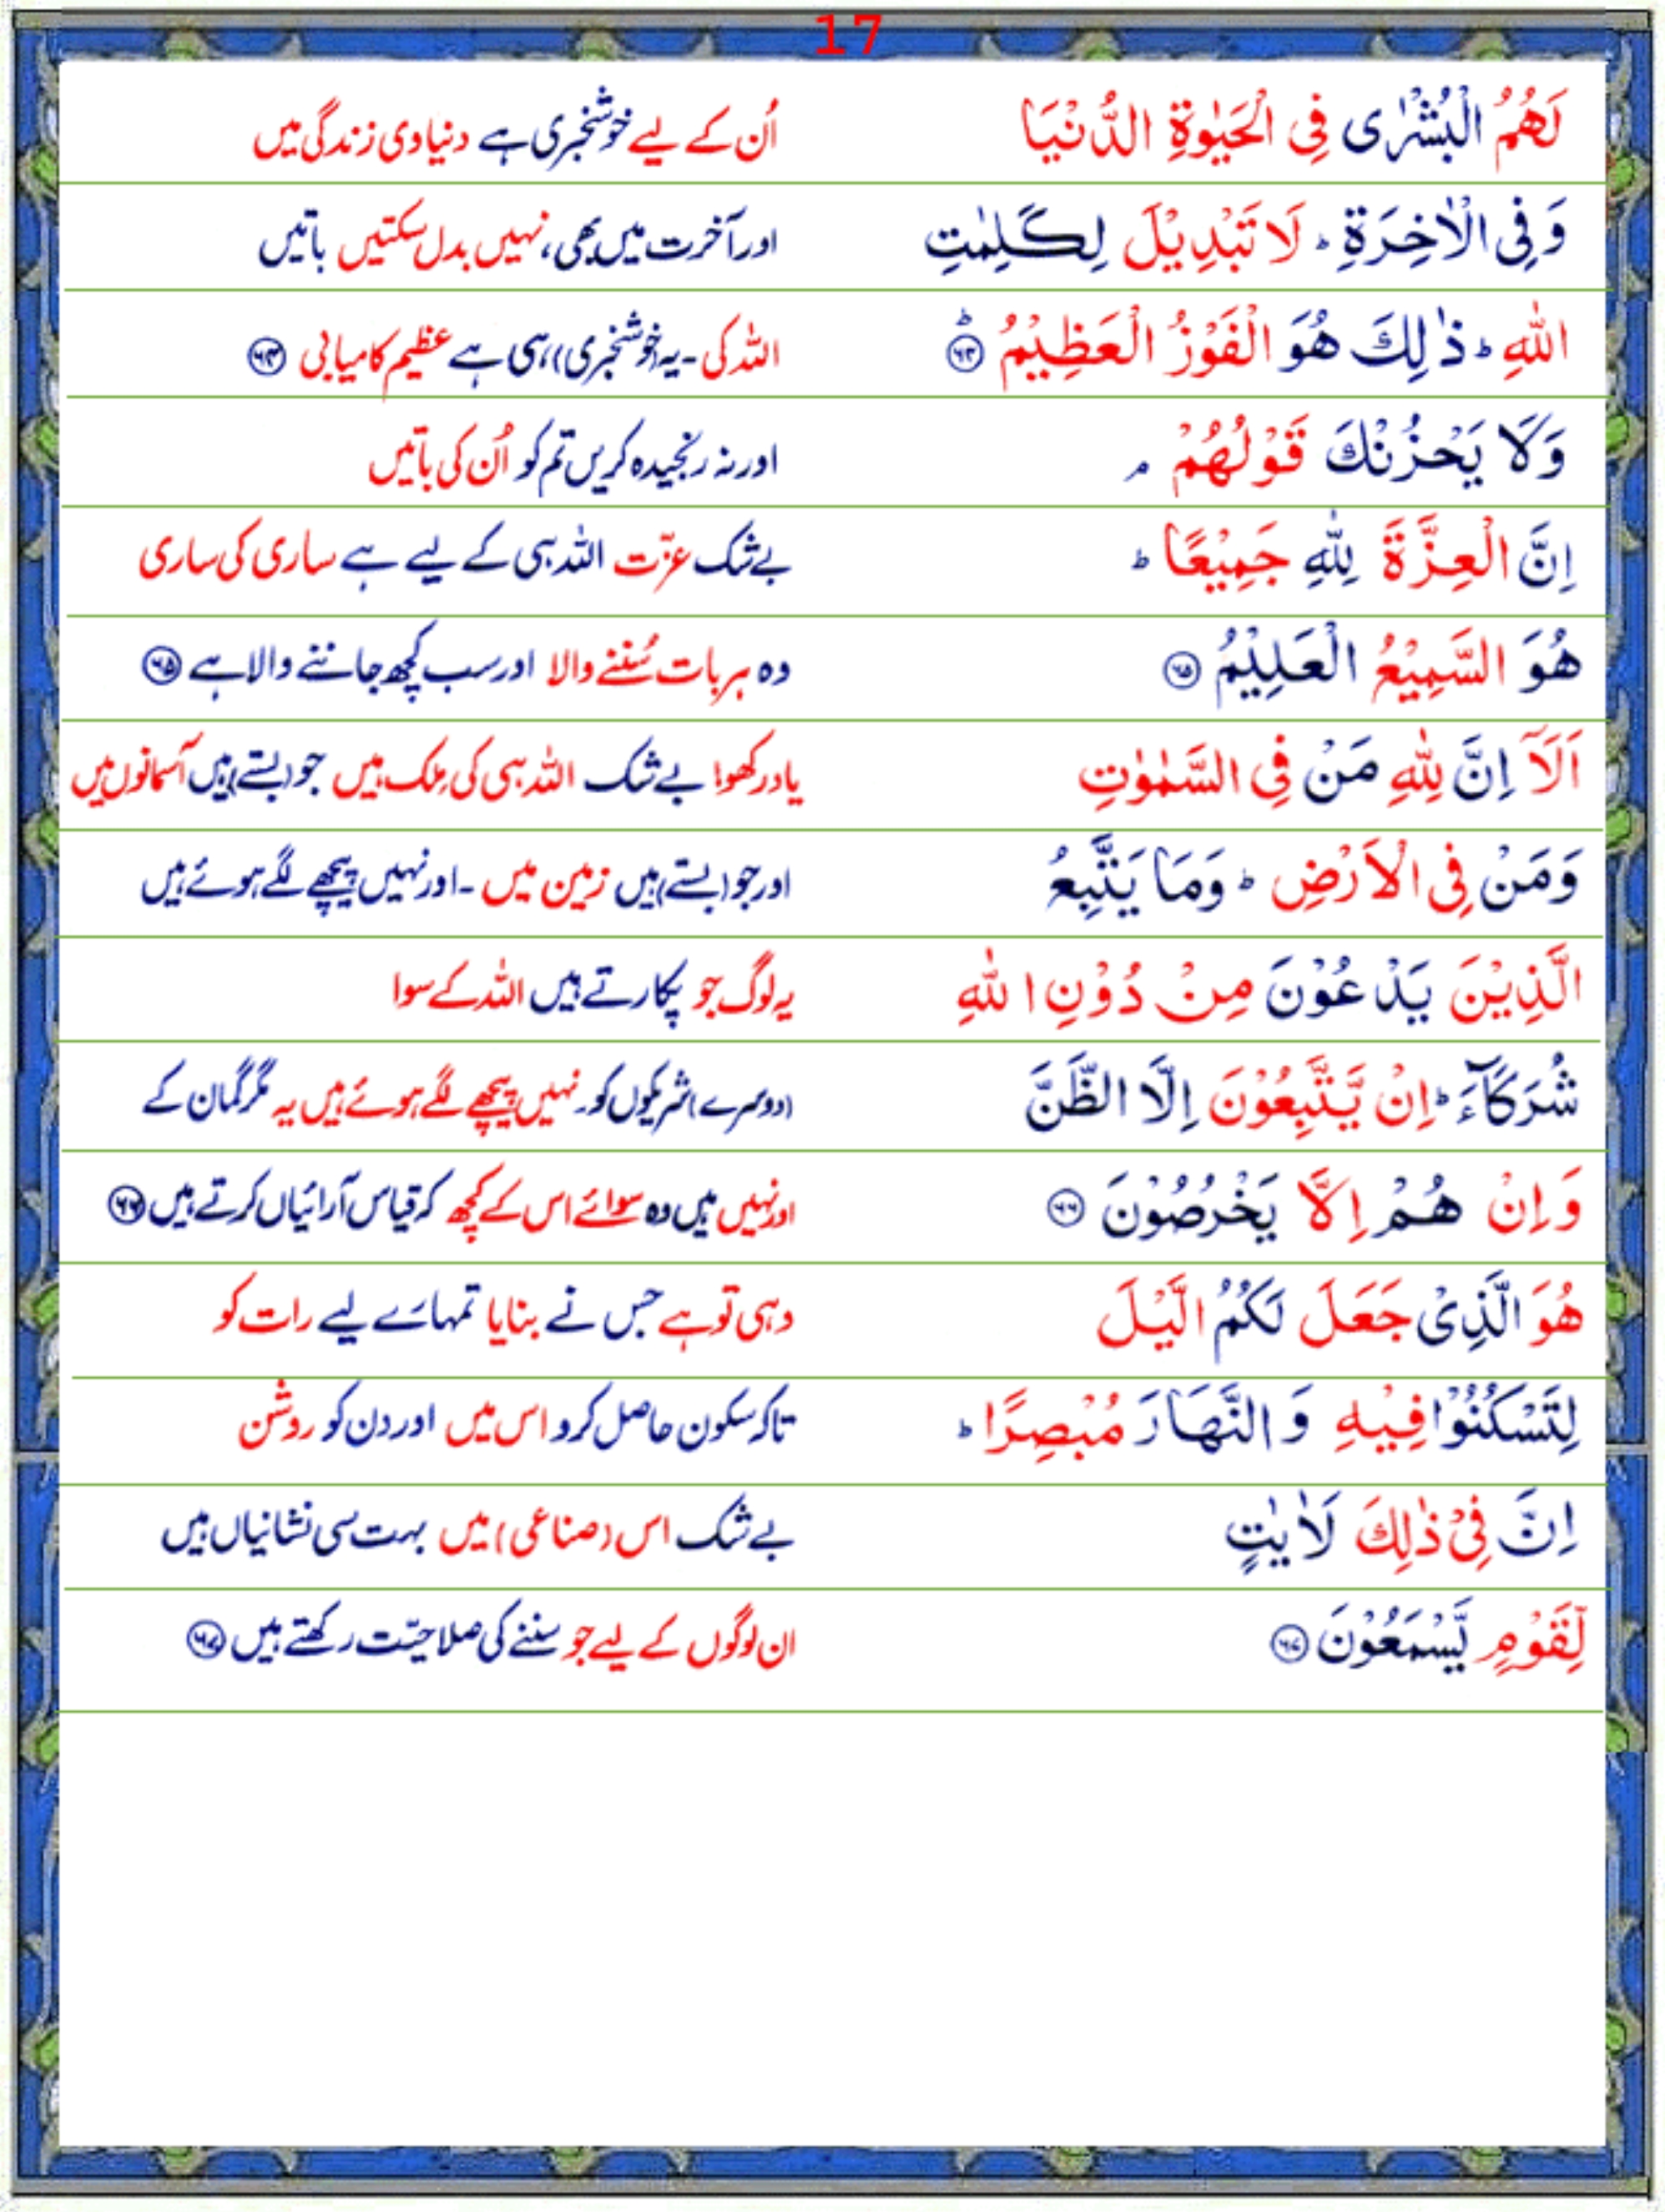 17
لَهُمُ الْبُشْرٰى فِى الْحَيٰوةِ الدُّنْيَا اُن کے لیے خوشخبری ہے دنیاوی زندگی میں
وَفِى الْاٰخِرَةِ ؕ لَا تَبْدِيْلَ لِكَلِمٰتِ اور آخرت میں بھی، نہیں بدل سکتیں باتیں
اللّٰهِ ؕ ذٰلِكَ هُوَ الْفَوْزُ الْعَظِيْمُ ؕ ﴿۶۴﴾ اللہ کی ۔ یہ (خوشخبری) ہی ہے عظیم کامیابی ﴿۶۴﴾
وَلَا يَحْزُنْكَ قَوْلُهُمْ ۘ اور نہ رنجیدہ کریں تم کو اُن کی باتیں
اِنَّ الْعِزَّةَ لِلّٰهِ جَمِيْعًا ؕ بے شک عزّت اللہ ہی کے لیے ہے ساری کی ساری
هُوَ السَّمِيْعُ الْعَلِيْمُ ﴿۶۵﴾ وہ ہر بات سُننے والا اور سب کچھ جاننے والا ہے ﴿۶۵﴾
اَلَاۤ اِنَّ لِلّٰهِ مَنْ فِى السَّمٰوٰتِ یاد رکھو! بے شک اللہ ہی کی مِلک ہیں جو (بستے) ہیں آسمانوں میں
وَمَنْ فِى الْاَرْضِ ؕ وَمَا يَتَّبِعُ اور جو (بستے) ہیں زمین میں ۔ اور نہیں پیچھے لگے ہوئے ہیں
الَّذِيْنَ يَدْعُوْنَ مِنْ دُوْنِ اللّٰهِ یہ لوگ جو پکارتے ہیں اللہ کے سوا
شُرَكَآءَ ؕ اِنْ يَّتَّبِعُوْنَ اِلَّا الظَّنَّ (دوسرے) شریکوں کو۔ نہیں پیچھے لگے ہوئے ہیں یہ مگر گمان کے
وَاِنْ هُمْ اِلَّا يَخْرُصُوْنَ ﴿۶۶﴾ اور نہیں ہیں وہ سوائے اس کے کچھ کہ قیاس آرائیاں کرتے ہیں ﴿۶۶﴾
هُوَ الَّذِىْ جَعَلَ لَكُمُ الَّيْلَ وہی تو ہے جس نے بنایا تمہارے لیے رات کو
لِتَسْكُنُوْا فِيْهِ وَالنَّهَارَ مُبْصِرًا ؕ تاکہ سکون حاصل کرو اس میں اور دن کو روشن
اِنَّ فِىْ ذٰلِكَ لَاٰيٰتٍ بے شک اس (صناعی) میں بہت سی نشانیاں ہیں
لِّقَوْمٍ يَّسْمَعُوْنَ ﴿۶۷﴾ ان لوگوں کے لیے جو سننے کی صلاحیّت رکھتے ہیں ﴿۶۷﴾